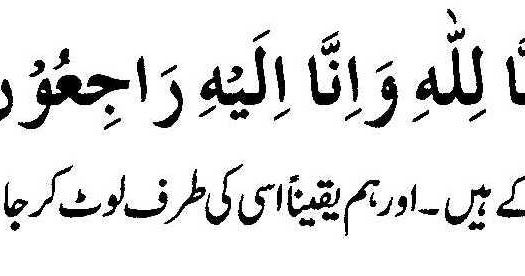 َّا لِلّٰهِ وَاِنَّا اِلَيْهِ رَاجِعُوْر
کے ہیں ۔ اور ہم یقیناً اسی کی طرف لوٹ کر جا